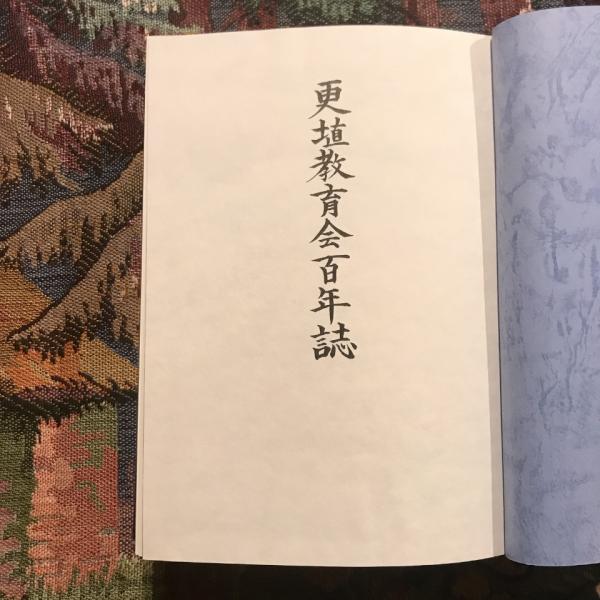 更埴教育会百年誌